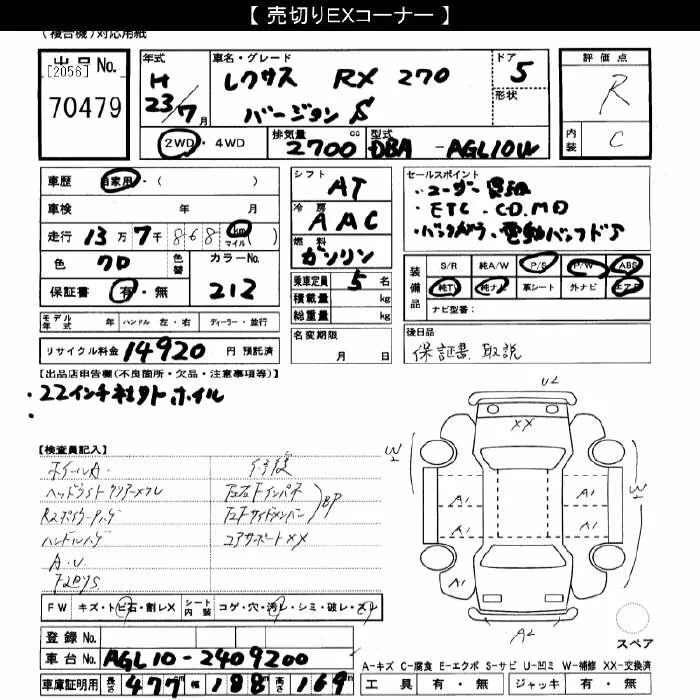 【 売切りEXコーナー 】
(複合機)対応用紙
出品No.
[2056]
70479
年式
H
23/7月
車名・グレード
レクサス RX 270
バージョンS
ドア
5
形状
評価点
R
内装
C
2WD・4WD
排気量 2700 cc
型式 DBA -AGL10W
車歴 自家用・( )
車検 年 月
走行 13万7千868 km マイル ( )
色 クロ
色替
カラーNo. 212
保証書 有・無
シフト AT
冷房 AAC
燃料 ガソリン
乗車定員 5 名
積載量 kg
総重量 kg
セールスポイント
・ユーザー買取
・ETC.CD.MD
・バックカメラ・電動バックドア
装備品
S/R 純A/W P/S P/W ABS
純TV 純ナビ 革シート 外ナビ エアB
ナビ型番:
モデル年式 年 ハンドル 左・右 ディーラー・並行
リサイクル料金 14920 円 預託済
名変期限
月 日
後日品
保証書 取説
【出品店申告欄(不良箇所・欠品・注意事項等)】
・22インチ社外ホイル
・
【検査員記入】
ホイールA.
ヘッドライト クリアーメクレ
ハンドルハゲ
修復
左右Fインパネ
左Fサイドメンバー
BP
コアサポートXX
FW キズ・トビ石・割レX
シート内装 コゲ・穴・汚レ・シミ・破レ・スレ
登録No.
車台No. AGL10-2409200
車庫証明用 長さ 477 幅 188 高さ 169
U2
XX
W1
W1
A1
A1
A1
A1
A1
A1
A2
スペア
A-キズ C-腐食 E-エクボ S-サビ U-凹ミ W-補修 XX-交換済
工具 有・無 ジャッキ 有・無